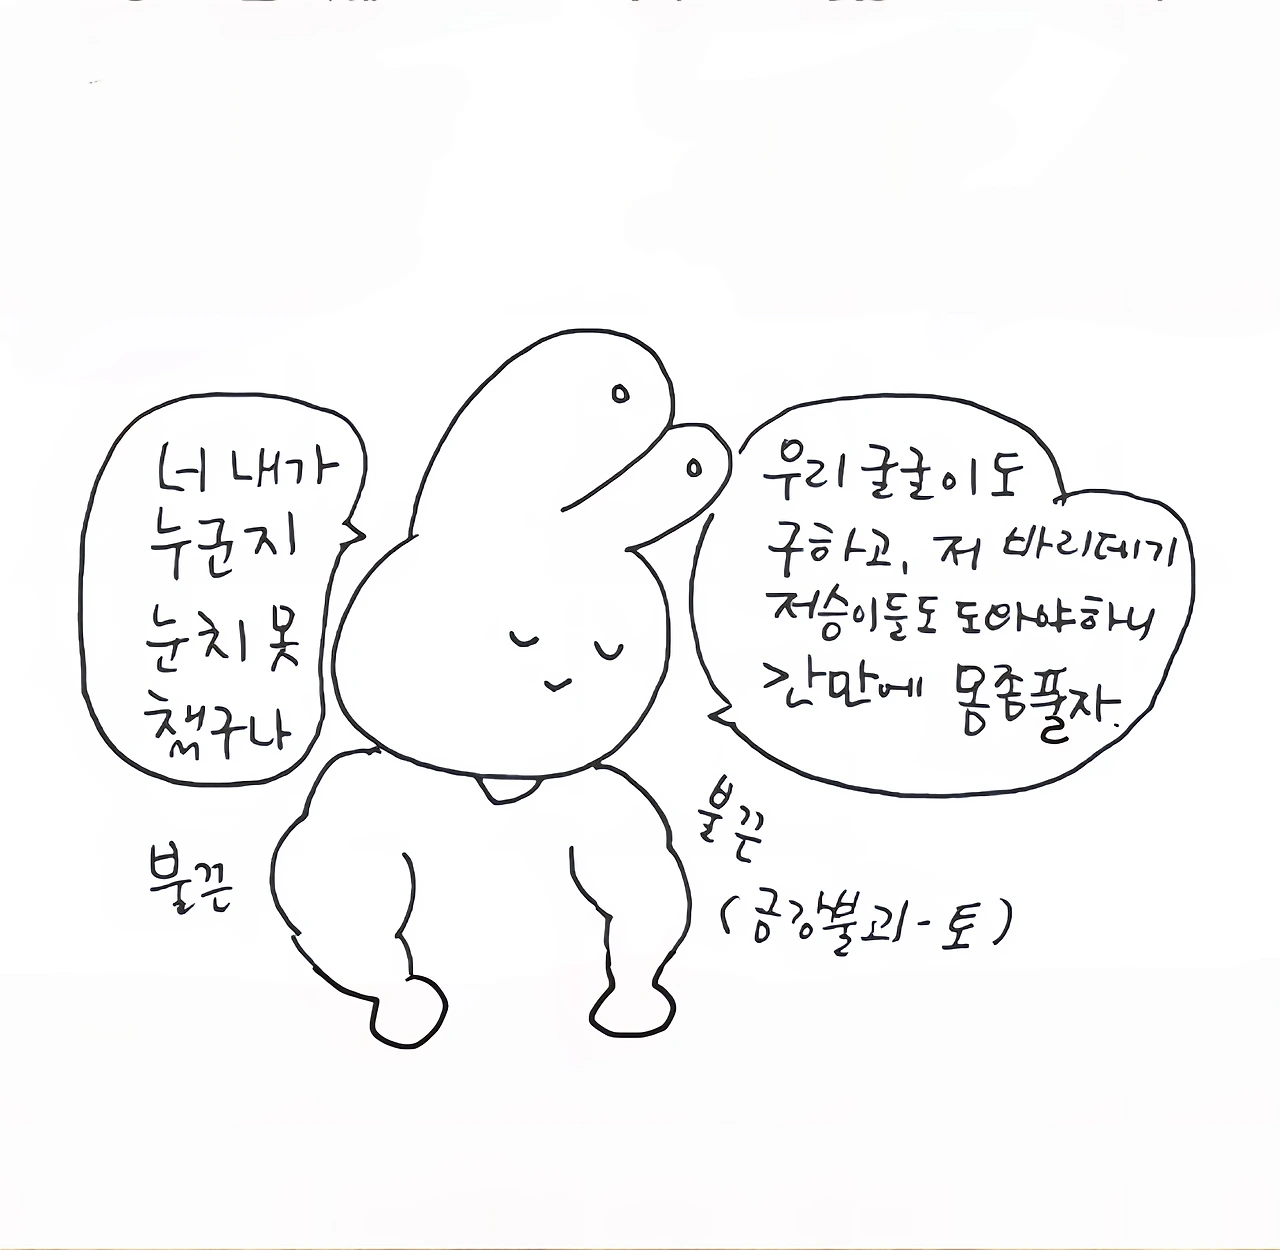 너 내가
누군지
눈치 못
챘구나
우리 굴굴이도
구하고, 저 바리데기
저승이들도 도와야하니
간만에 몸좀풀자.
불끈
불끈
(금강불괴-토)